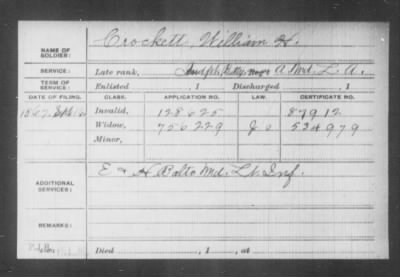 NAME OF SOLDIER: Crockett, William H.
SERVICE: Late rank, A Md. L. A.
TERM OF SERVICE: Enlisted , 1 Discharged , 1
DATE OF FILING. CLASS. APPLICATION NO. LAW. CERTIFICATE NO.
1867 Invalid, 128625 87912
Widow, 756229 534979
Minor,
ADDITIONAL SERVICES: E & H Balto Md. Lt. Inf.
REMARKS:
Died , 1 , at